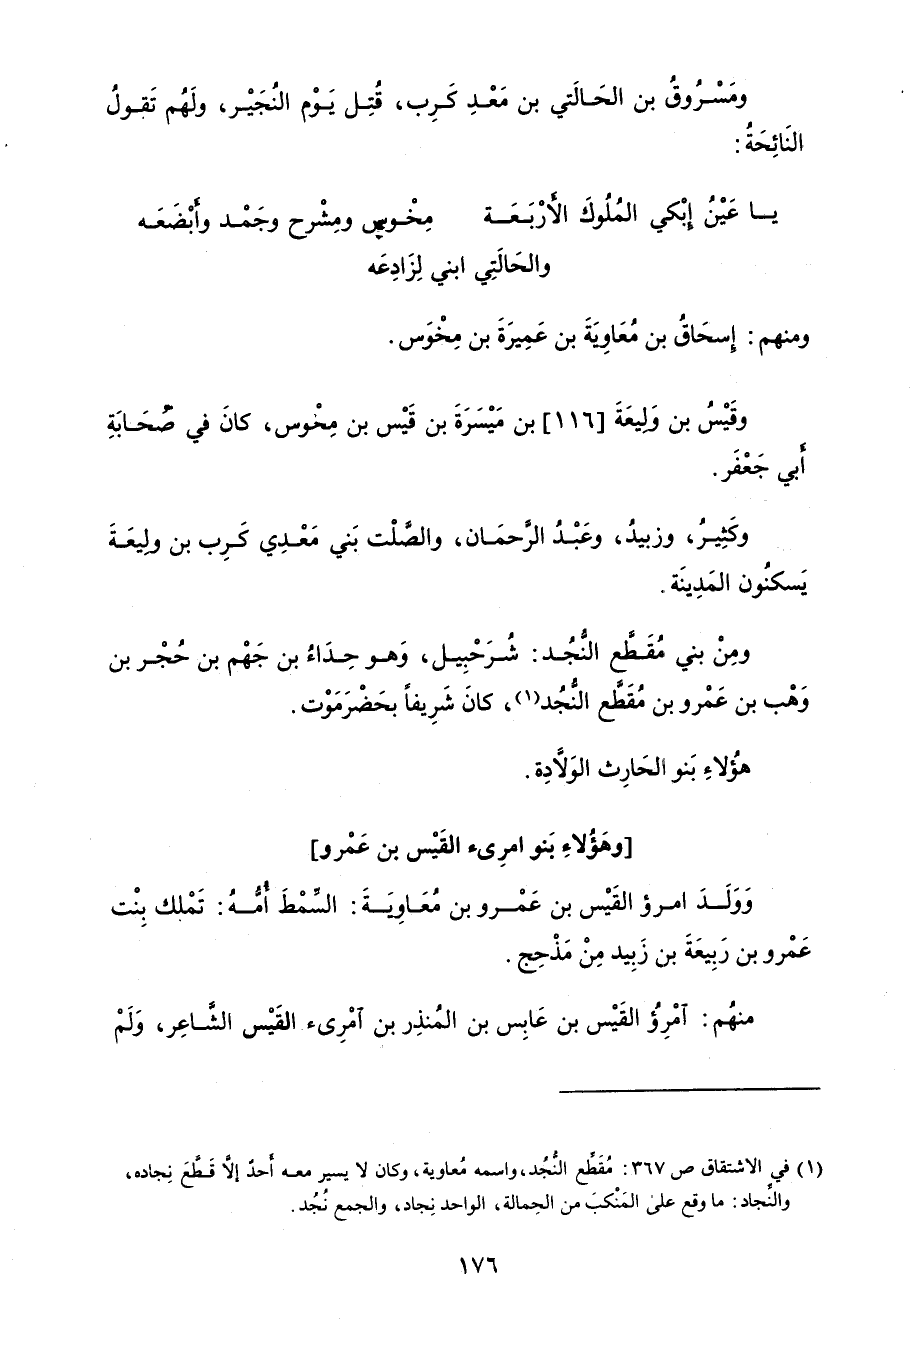 ومَسْرُوقُ بن الحَالَتي بن مَعْدِ كَرِب، قُتِل يَوْم النُجَيْر، ولَهُم تَقولُ
النَائِحَةُ:
يا عَيْنُ إِبْكي المُلُوكَ الأَرْبَعَة مِخْوس ومِشْرح وجَمْد وأَبْضَعَه
والحَالَتِي ابني لِزَادِعَه
ومنهم: إِسحَاقُ بن مُعَاوِيَةَ بن عَمِيرَةَ بن مِخْوَس.
وقَيْسُ بن وَلِيعَةَ [١١٦] بن مَيْسَرَةَ بن قَيْس بن مِخْوس، كانَ في صُحَابَةِ
أَبي جَعْفَر.
وكَثِيرُ، وزبيدُ، وعَبْدُ الرَّحمَان، والصَّلْت بَني مَعْدِي كَرِب بن ولِيعَةَ
يَسكنُون المَدِينَة.
ومِنْ بني مُقَطَّع النُّجُد: شُرَحْبِيل، وَهو حِدَاءُ بن جَهْم بن حُجْر بن
وَهْب بن عَمْرو بن مُقَطَّع النُّجُد(١)، كانَ شَرِيفاً بحَضْرَمَوْت.
هؤُلاءِ بَنو الحَارِث الوَلاَّدِة.
[وهَؤُلاءِ بَنو امرِىء القَيْس بن عَمْرو]
وَوَلَدَ امرؤ القَيْس بن عَمْرو بن مُعَاوِيَةَ: السِّمْطَ أُمُّهُ: تَمْلك بِنْت
عَمْرو بن رَبِيعَةَ بن زَبِيد مِنْ مَذْحِج.
منهُم: آمْرِؤُ القَيْس بن عَابِس بن المُنذِر بن آمْرِىء القَيْس الشَّاعِر، وَلَمْ
(١) في الاشتقاق ص ٣٦٧: مُقَطِّع النُّجُد، واسمه مُعاوية، وكان لا يسير معه أَحدٌ إلَّا قَطَّعَ نِجاده،
والنَِّجاد: ما وقع علىٰ المَنْكبَ من الحِمالة، الواحد نِجاد، والجمع نُجُد.
١٧٦